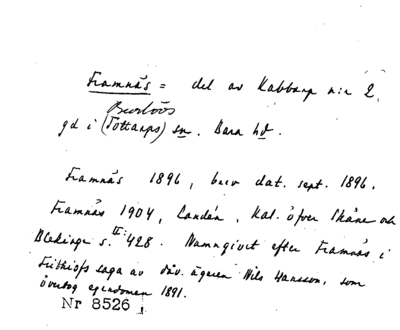 Framnäs = del av Kabbarp n:r 2,
Burlövs
gd i (Tottarps) sn. Bara hd.
Framnäs 1896, brev dat. sept. 1896.
Framnäs 1904, Landén, Kal. öfver Skåne och
Blekinge s. II: 428. Namngivet efter Framnäs i
Frithiofs saga av däv. ägaren Nils Hansson, som
övertog egendomen 1891.
Nr 8526